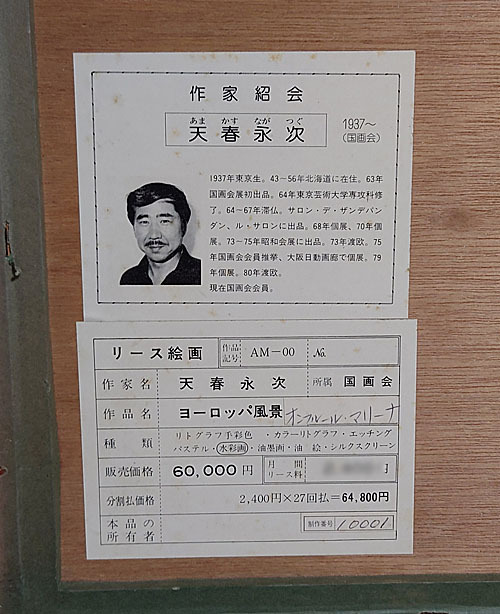 作家紹会
あま かす なが つぐ
天春永次
1937〜
(国画会)
1937年東京生。43〜56年北海道に在住。63年
国画会展初出品。64年東京芸術大学専攻科修
了。64〜67年滞仏。サロン・デ・ザンデパン
ダン、ル・サロンに出品。68年個展、70年個
展。73〜75年昭和会展に出品。73年渡欧。75
年国画会会員推挙、大阪日動画廊で個展。79
年個展。80年渡欧。
現在国画会会員。
リース絵画 作品記号 AM-00 No.
作家名 天春永次 所属 国画会
作品名 ヨーロッパ風景 オンフルール・マリーナ
種類 リトグラフ手彩色・カラーリトグラフ・エッチング
パステル・水彩画・油墨画・油絵・シルクスクリーン
販売価格 60,000円 月間リース料
分割払価格 2,400円×27回払=64,800円
本品の所有者 制作番号 10001